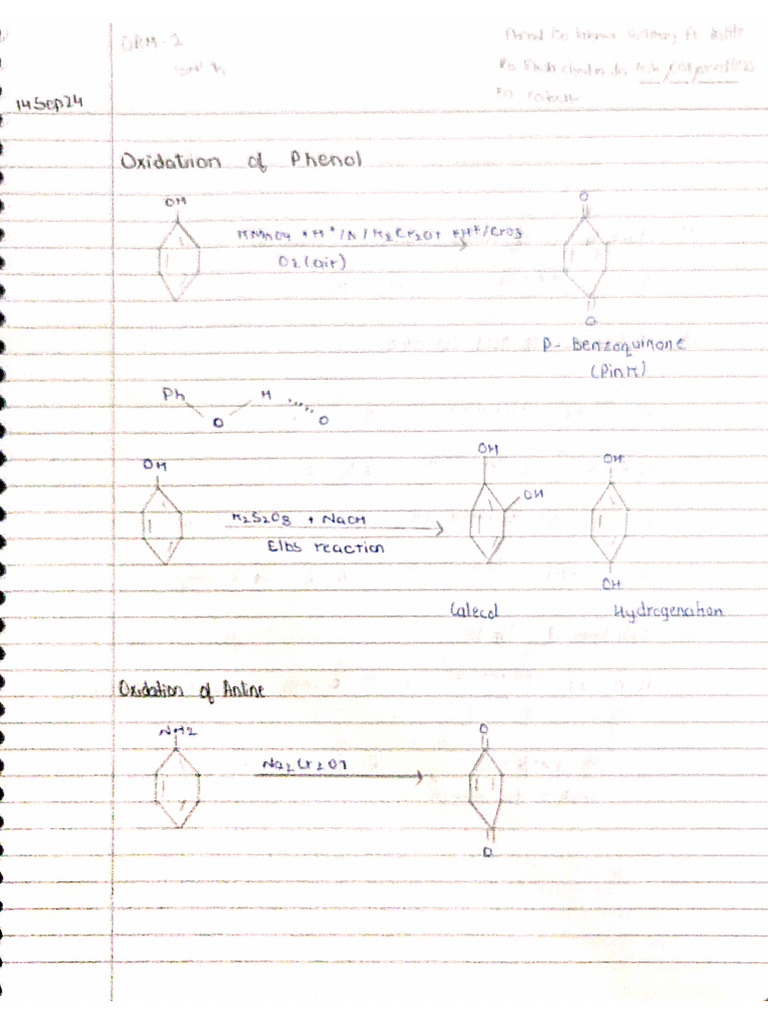 ORM-2
14 Sep 24
Oxidation of Phenol
OH
O
KMnO4 + H+/Δ/K2Cr2O7 + H+/CrO3
O2 (air)
O
P- Benzoquinone
(Pink)
Ph
H
O
O
OH
OH
OH
OH
K2S2O8 + NaOH
Elbs reaction
OH
Catecol
Hydrogenation
Oxidation of Anline
NH2
O
Na2Cr2O7
O